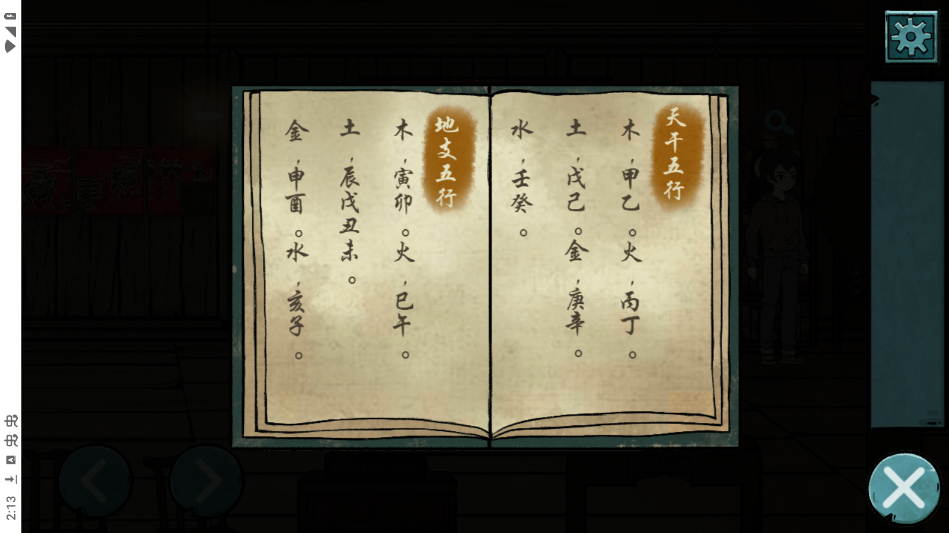 天干五行
木，甲乙。火，丙丁。
土，戊己。金，庚辛。
水，壬癸。
地支五行
木，寅卯。火，巳午。
土，辰戌丑未。
金，申酉。水，亥子。
2:13